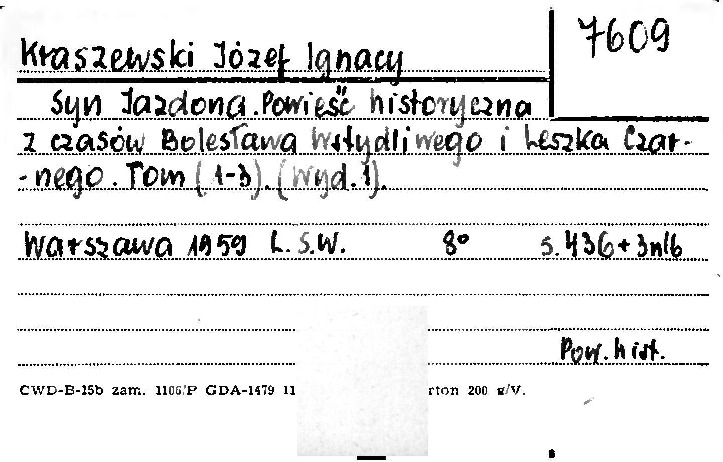 7609
Kraszewski Józef Ignacy
Syn Jazdona. Powieść historyczna
z czasów Bolesława Wstydliwego i Leszka Czar-
-nego. Tom (1-3). (Wyd. 1).
Warszawa 1959 L.S.W. 8° s. 436 + 3nlb
Pow. hist.
CWD-B-15b zam. 1106/P GDA-1479 11 rton 200 g/V.